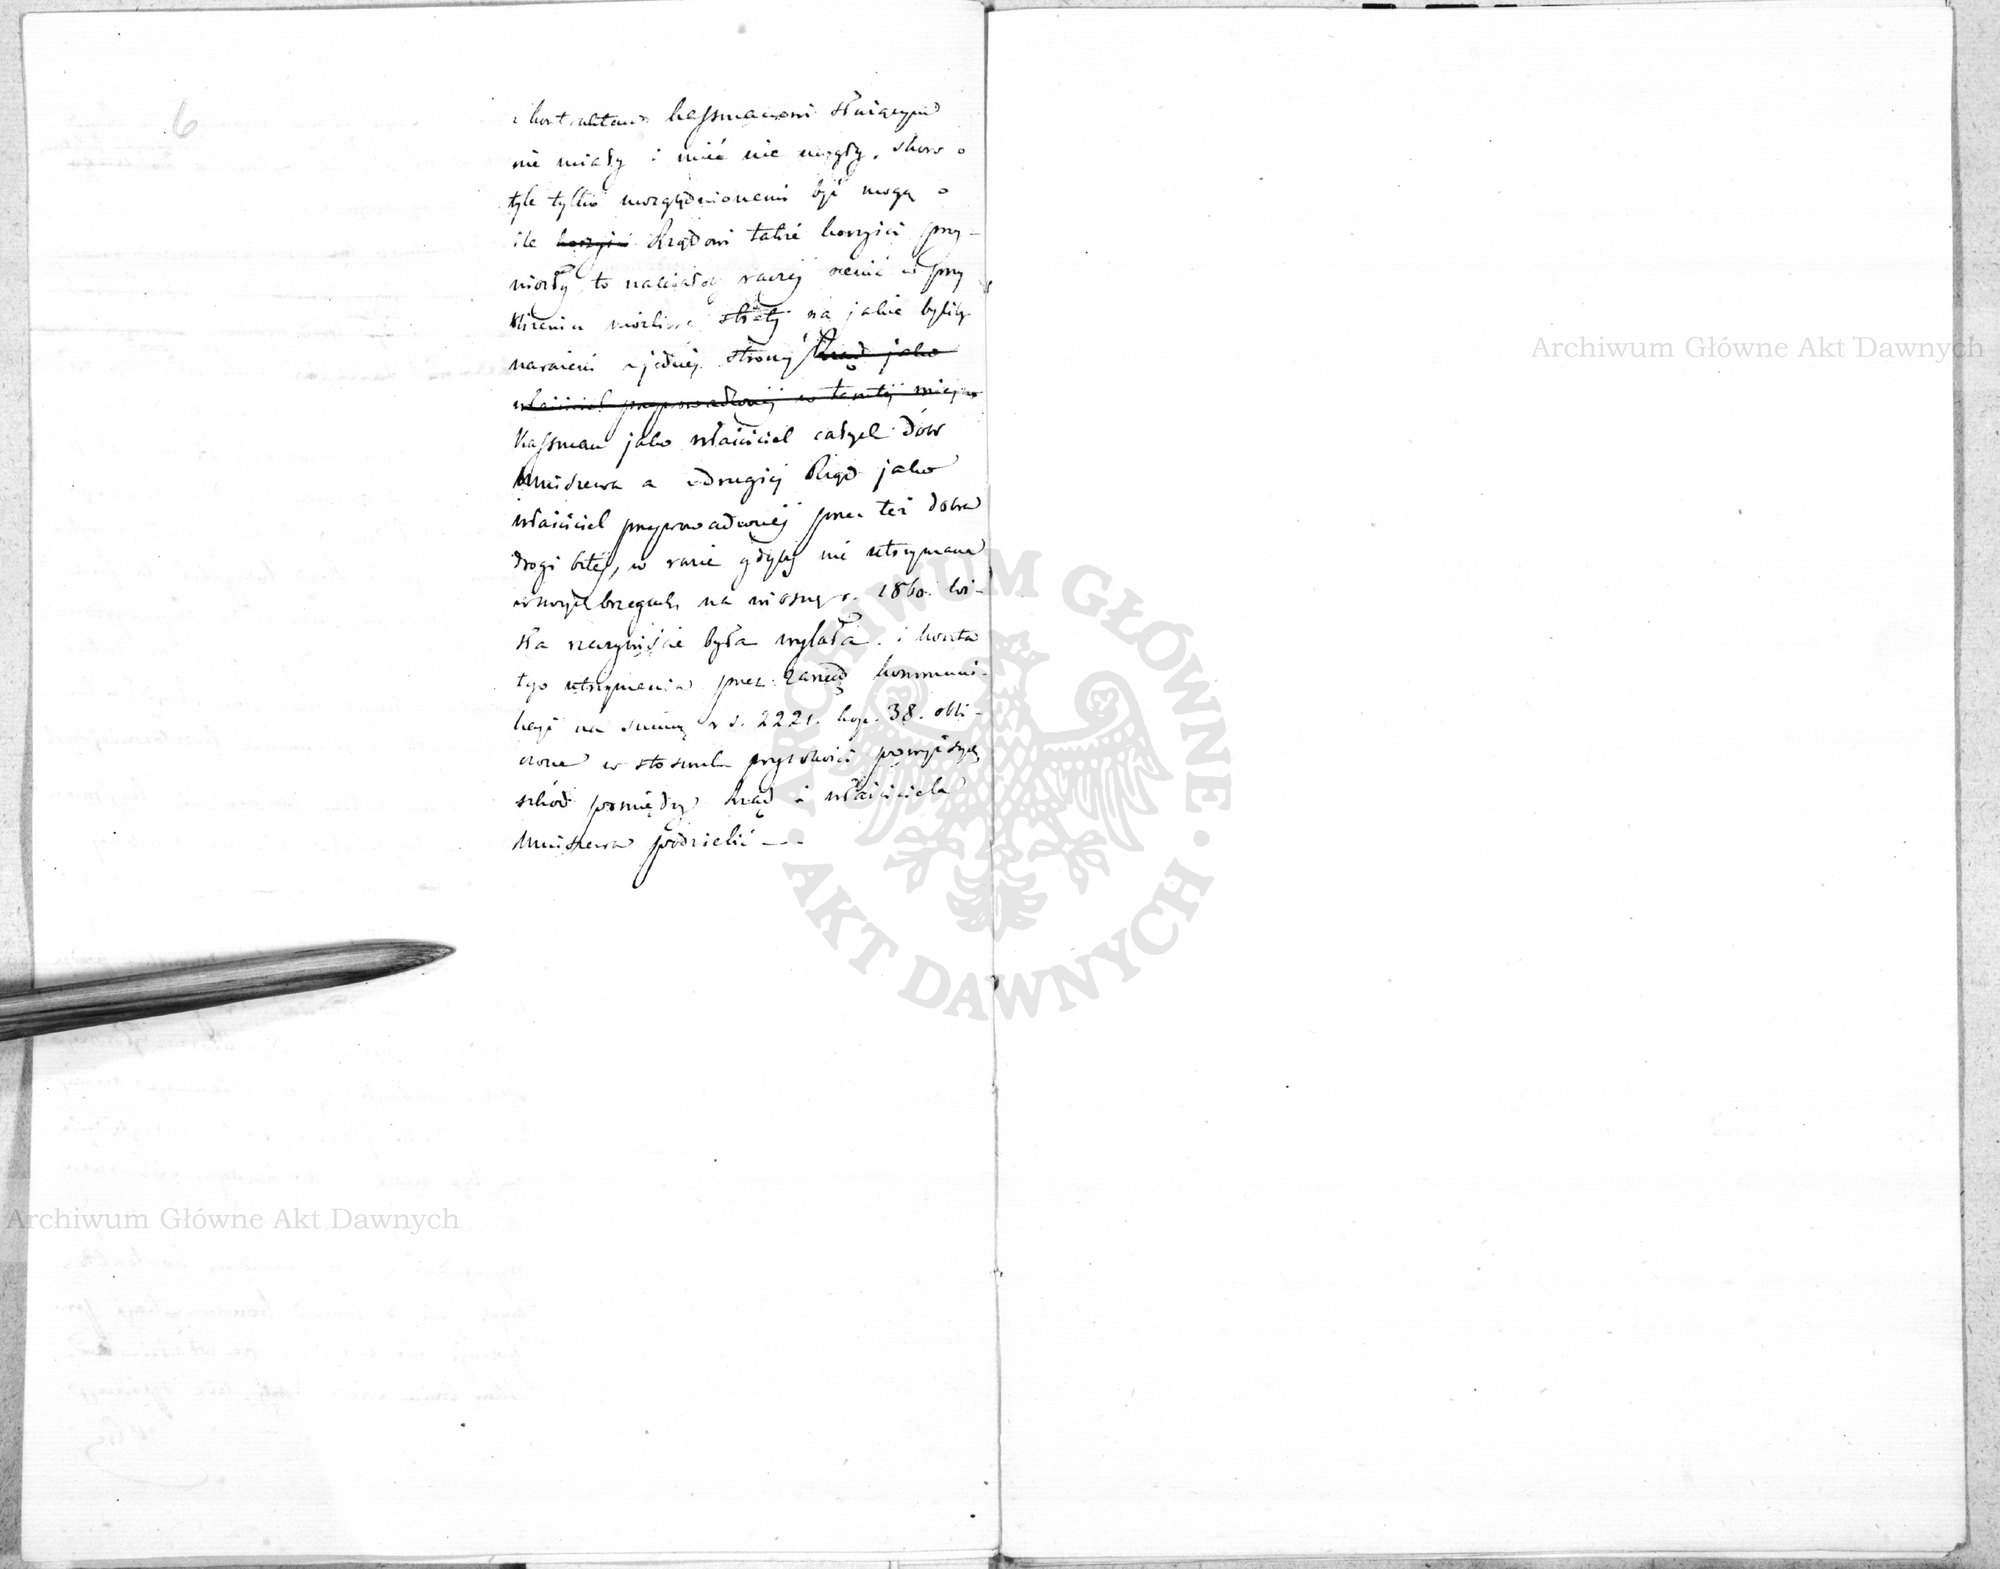 6
Kassmanowi służącym
nie miały i mieć nie mogły, skoro o
tyle tylko uwzględnionemi być mogą o
ile korzyści Rządowi także korzyści przy-
niosły to należałoby raczej ocenić w przy
bliżeniu możliwe straty na jakie byliby
narażeni z jednej strony Rząd jako
właściciel przyprowadzonej w tamtej miejsce
Kassman jako właściciel całych dóbr
Mniszewa a z drugiej Rząd jako
właściciel przyprowadzonej przez też dobra
drogi bitej, w razie gdyby nie utrzymana
w swych brzegach na wiosnę r. 1860. Wi-
sła rzeczywiście była wylała. i koszta
tego utrzymania przez Zarząd kommuni-
kacji na summę r s. 2221. kop. 38. obli-
czone w stosunku wysokości powyższych
szkód pomiędzy Rząd i właściciela
Mniszewa podzielić —
ARCHIWUM GŁÓWNE AKT DAWNYCH
Archiwum Główne Akt Dawnych
Archiwum Główne Akt Dawnych